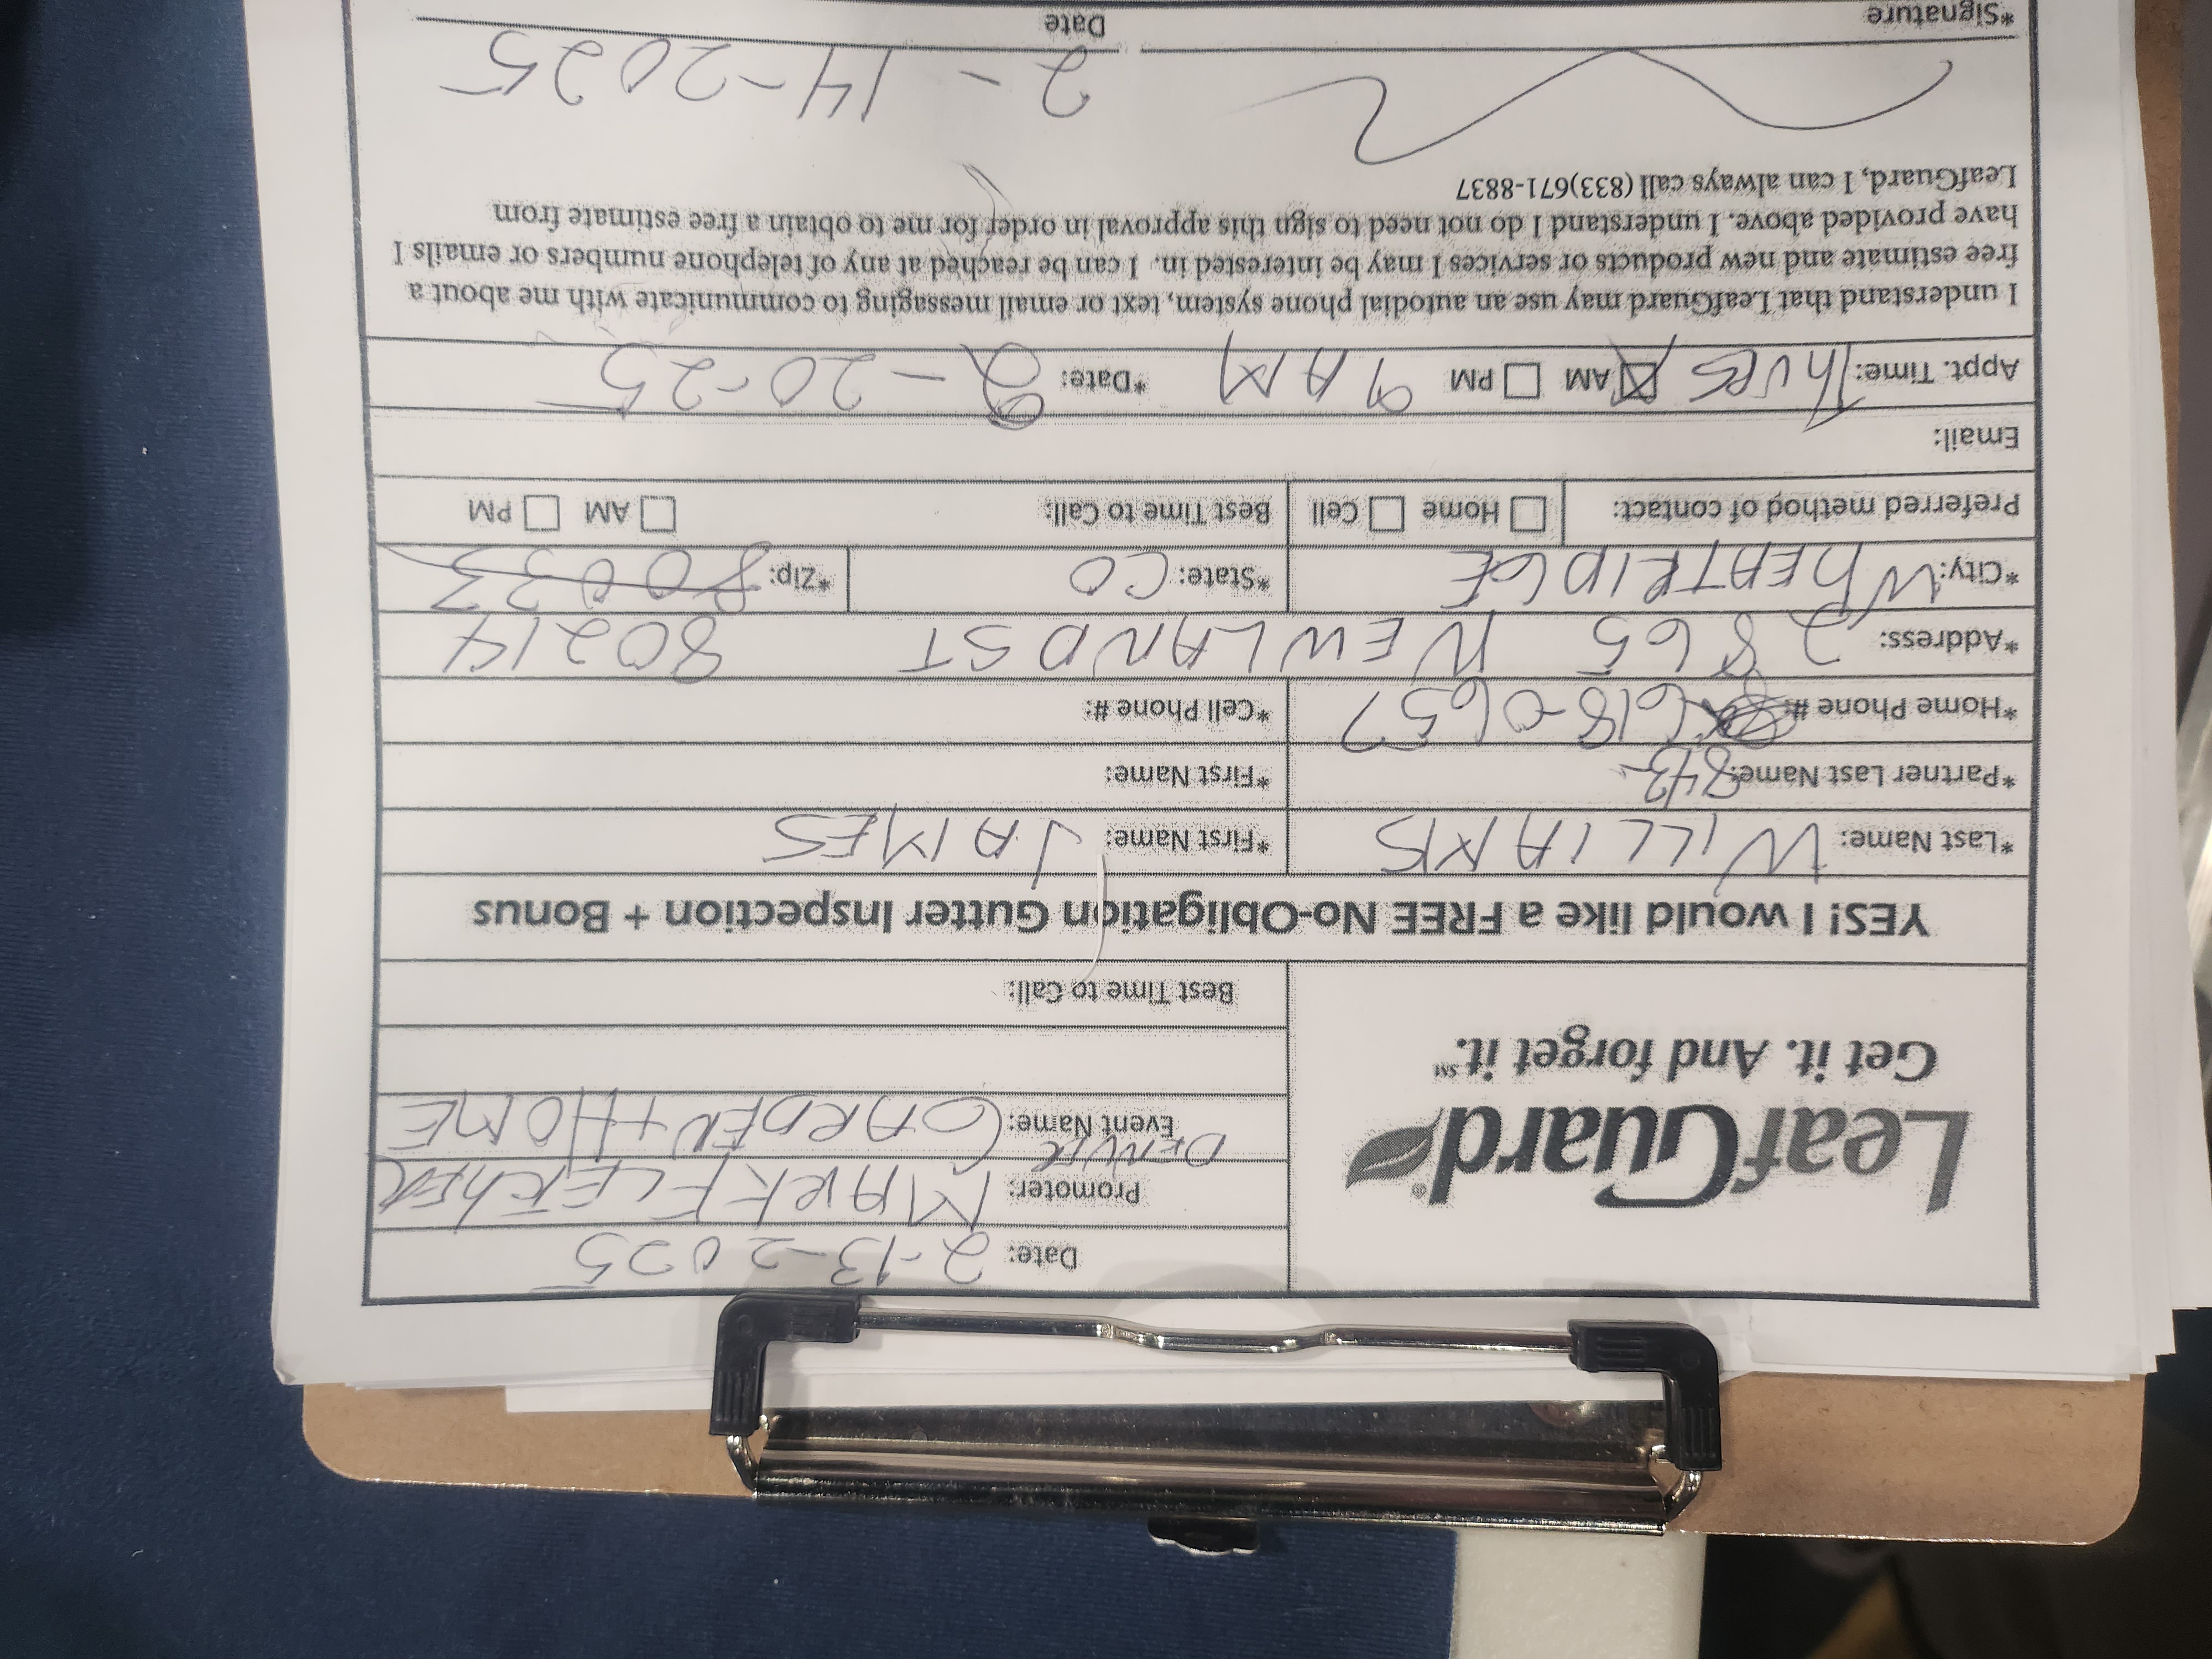 LeafGuard®
Get it. And forget it.℠
Date: 2-13-2025
Promoter: MARK FLETCHER
DENVER
Event Name: GARDEN + HOME
Best Time to Call:
YES! I would like a FREE No-Obligation Gutter Inspection + Bonus
*Last Name: WILLIAMS *First Name: JAMES
*Partner Last Name: *First Name:
843
*Home Phone #: 618-0657 *Cell Phone #:
*Address: 2865 NEWLAND ST 80214
*City: WHEATRIDGE *State: CO *Zip: 80033
Preferred method of contact: Home Cell Best Time to Call: AM PM
Email:
Appt. Time: Thurs AM PM 9 AM *Date: 2-20-25
I understand that LeafGuard may use an autodial phone system, text or email messaging to communicate with me about a
free estimate and new products or services I may be interested in. I can be reached at any of telephone numbers or emails I
have provided above. I understand I do not need to sign this approval in order for me to obtain a free estimate from
LeafGuard, I can always call (833)671-8837
2-14-2025
*Signature Date